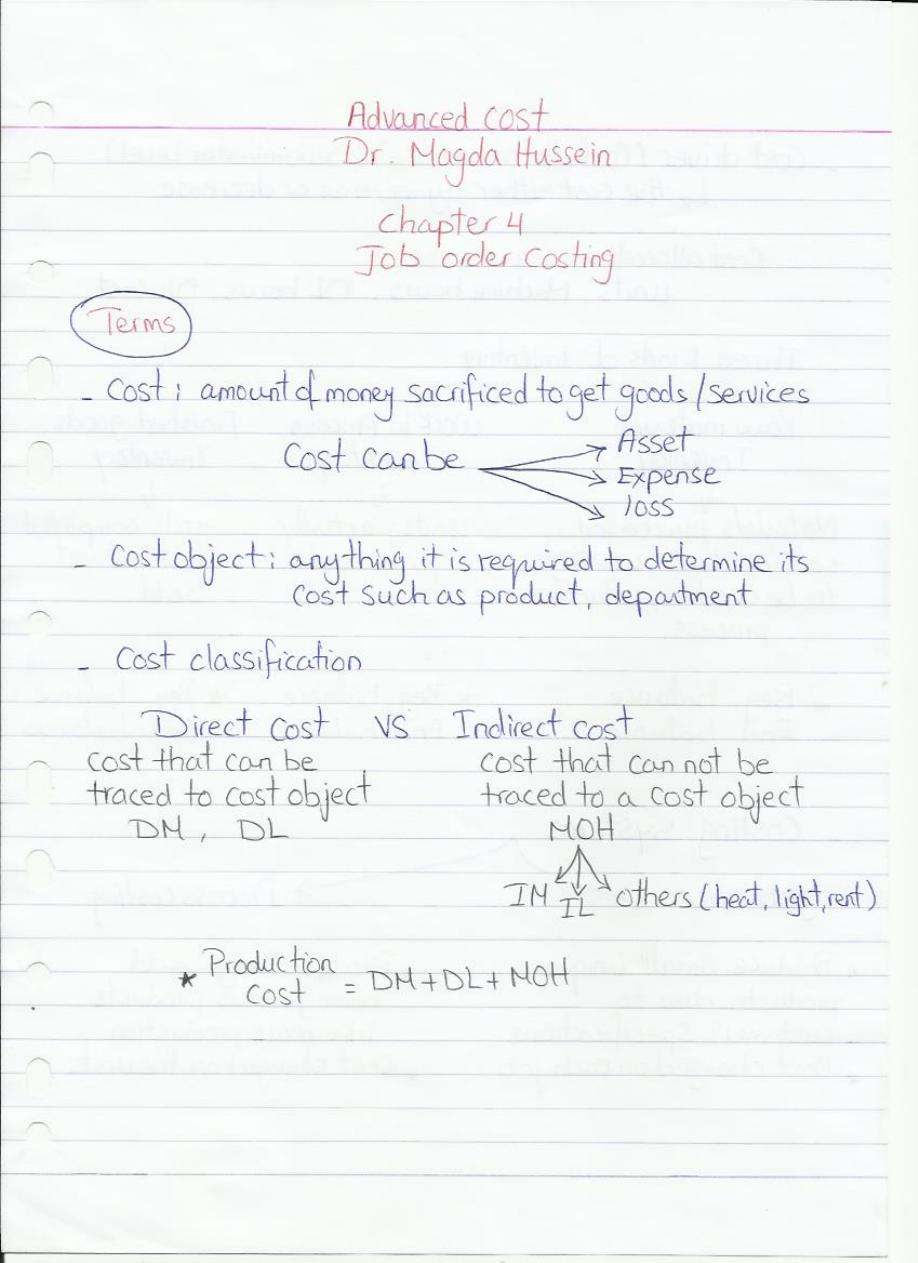 Advanced cost
Dr. Magda Hussein
Chapter 4
Job order Costing
Terms
- Cost : amount of money sacrificed to get goods / services
Cost can be
Asset
Expense
loss
- Cost object : anything it is required to determine its
cost such as product, department
- Cost classification
Direct cost VS Indirect cost
cost that can be cost that can not be
traced to cost object traced to a cost object
DM , DL MOH
IM IL others (heat, light, rent)
* Production
cost = DM + DL + MOH